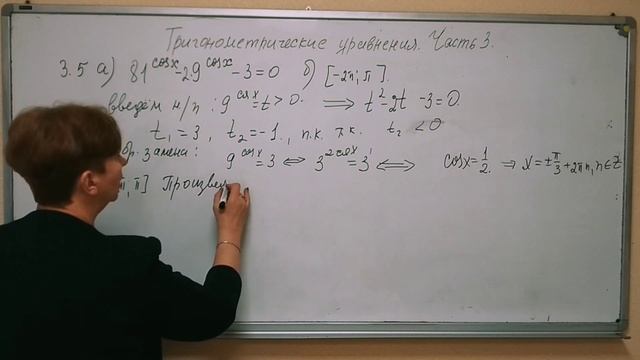 Тригонометрические уравнения. Часть 3.
3.5 а) 81^cosx - 2·9^cosx - 3=0 б) [-2π; π].
введём н/п : 9^cosx = t > 0. ⟹ t² - 2t - 3 = 0.
t₁ = 3, t₂ = -1., п.к. т.к. t₂ < 0
обр. замена: 9^cosx = 3 ⟺ 3^2cosx = 3¹ ⟺ cosx = 1/2. → x = ±π/3 + 2πn, n ∈ Z
π; π] Произвед